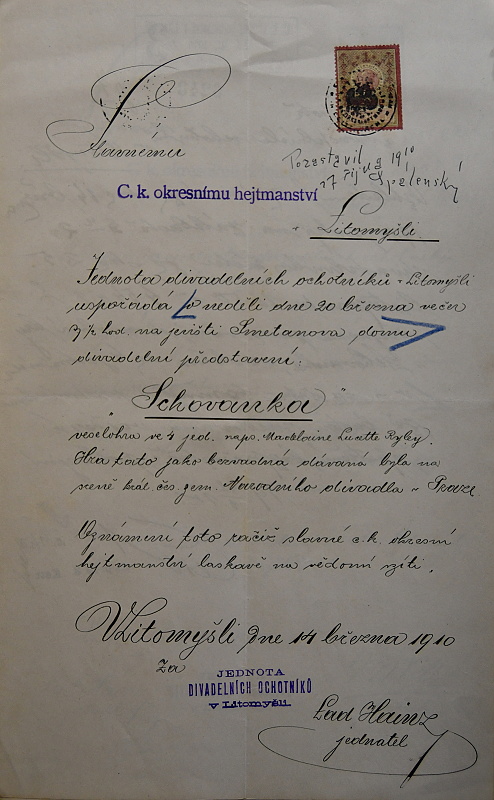 Slavnému
Pozastavil
17 října 1910
Spálenský
C. k. okresnímu hejtmanství
v Litomyšli.
Jednota divadelních ochotníků v Litomyšli
uspořádá v neděli dne 20 března večer
7 1/2 hod. na jevišti Smetanova domu
divadelní představení:
"Schovanka"
veselohra ve 4 jed. naps. Madelaine Lucette Ryley.
Hra tato jako bezvadná dávaná byla na
scéně král. čes. zem. Národního divadla v Praze.
Oznámení toto račiž slavné c. k. okresní
hejtmanství laskavě na vědomí vzíti.
V Litomyšli dne 14 března 1910
Za
JEDNOTA
DIVADELNÍCH OCHOTNÍKŮ
v Litomyšli
Lad Hainz
jednatel